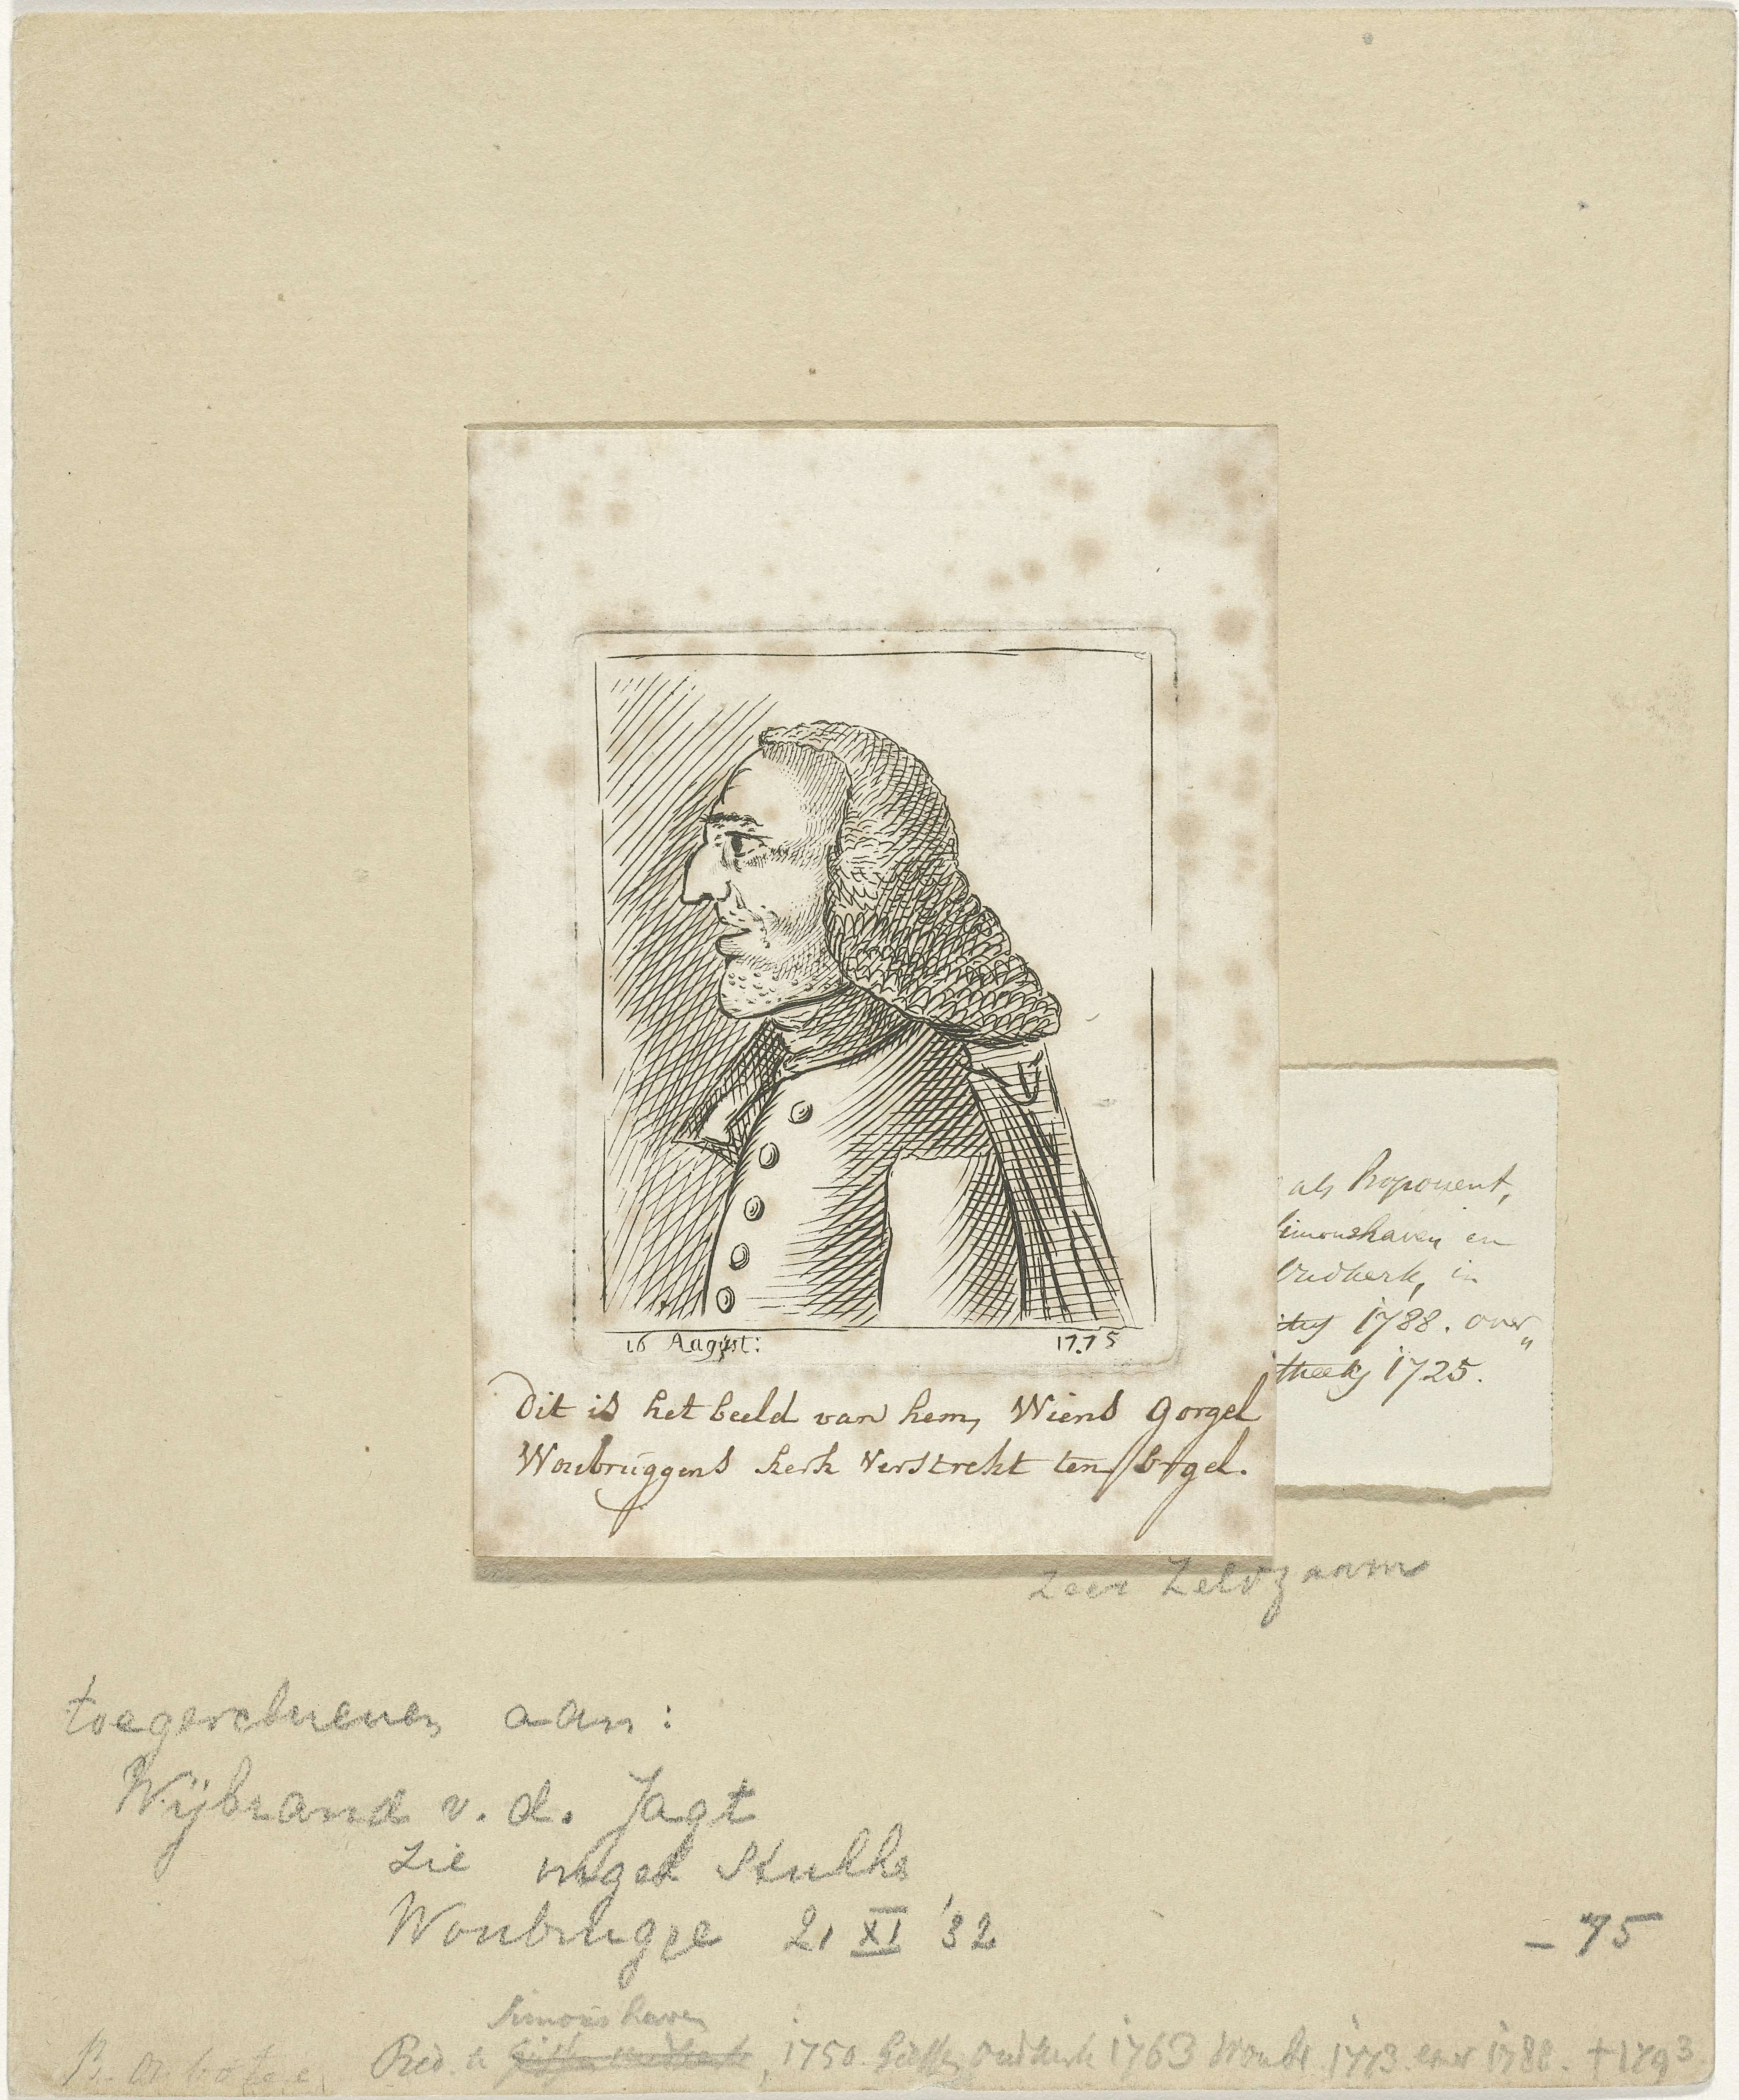 16 August: 1775
Dit is het beeld van hem, Wiens Gorgel
Woubruggens kerk Verstrekt ten Orgel.
als Proponent,
Simonshaven en
Oudkerk, in
1788. over„
1725.
zeer zeldzaam
toegeschreven aan:
Wijbrand v. d. Jagt
zie
Woubrugge 21 XI '32
- 75
Simonshaven
Pred. te 1750. Oudkerk 1763 Woubr. 1773 emer 1788. †1793